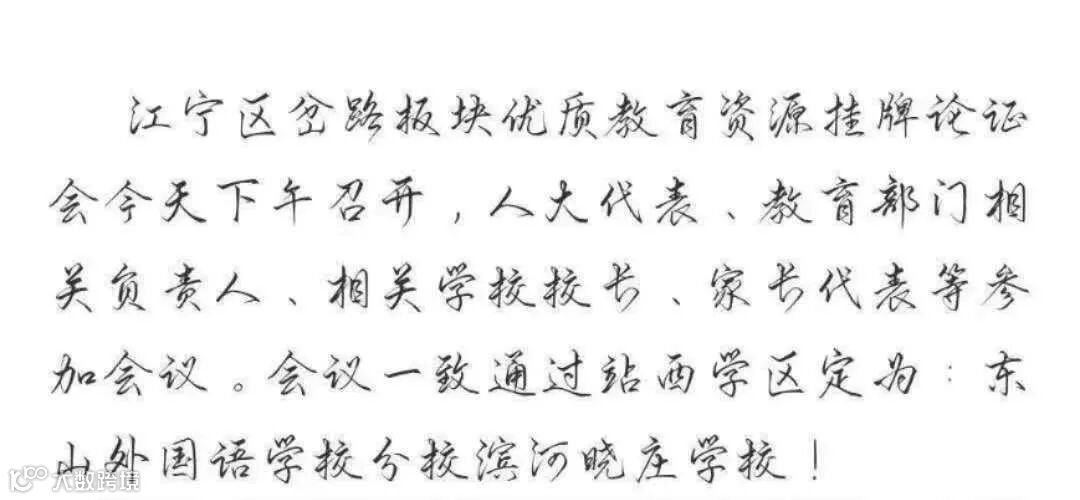 江宁区岔路板块优质教育资源挂牌论证
会今天下午召开，人大代表、教育部门相
关负责人、相关学校校长、家长代表等参
加会议。会议一致通过站西学区定为：东
山外国语学校分校滨河晓庄学校！
大数跨境